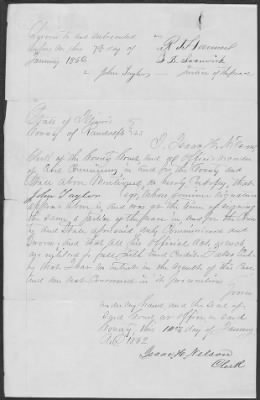 sworn to and subscribed
before me this 7th day of
January 1862
John Taylor
Justice of the peace
State of Illinois
County of Randolph ss
I, Isaac H. Nelson
Clerk of the County Court
in and for the County and
State above do hereby Certify, that
John Taylor Esq. whose genuine signature
appears above is and was at the time of signing
the same, a Justice of the peace in and for the County
and State aforesaid, duly Commissioned and
Sworn, and that all his Official Acts as such
are entitled to full faith and Credit. I also Certify
that I have no interest in the result of this Case
and am not concerned in its prosecution.
Given
under my hand and the Seal of
Said Court at office in said
County, this 10th day of January
A.D. 1862
Isaac H. Nelson
Clerk